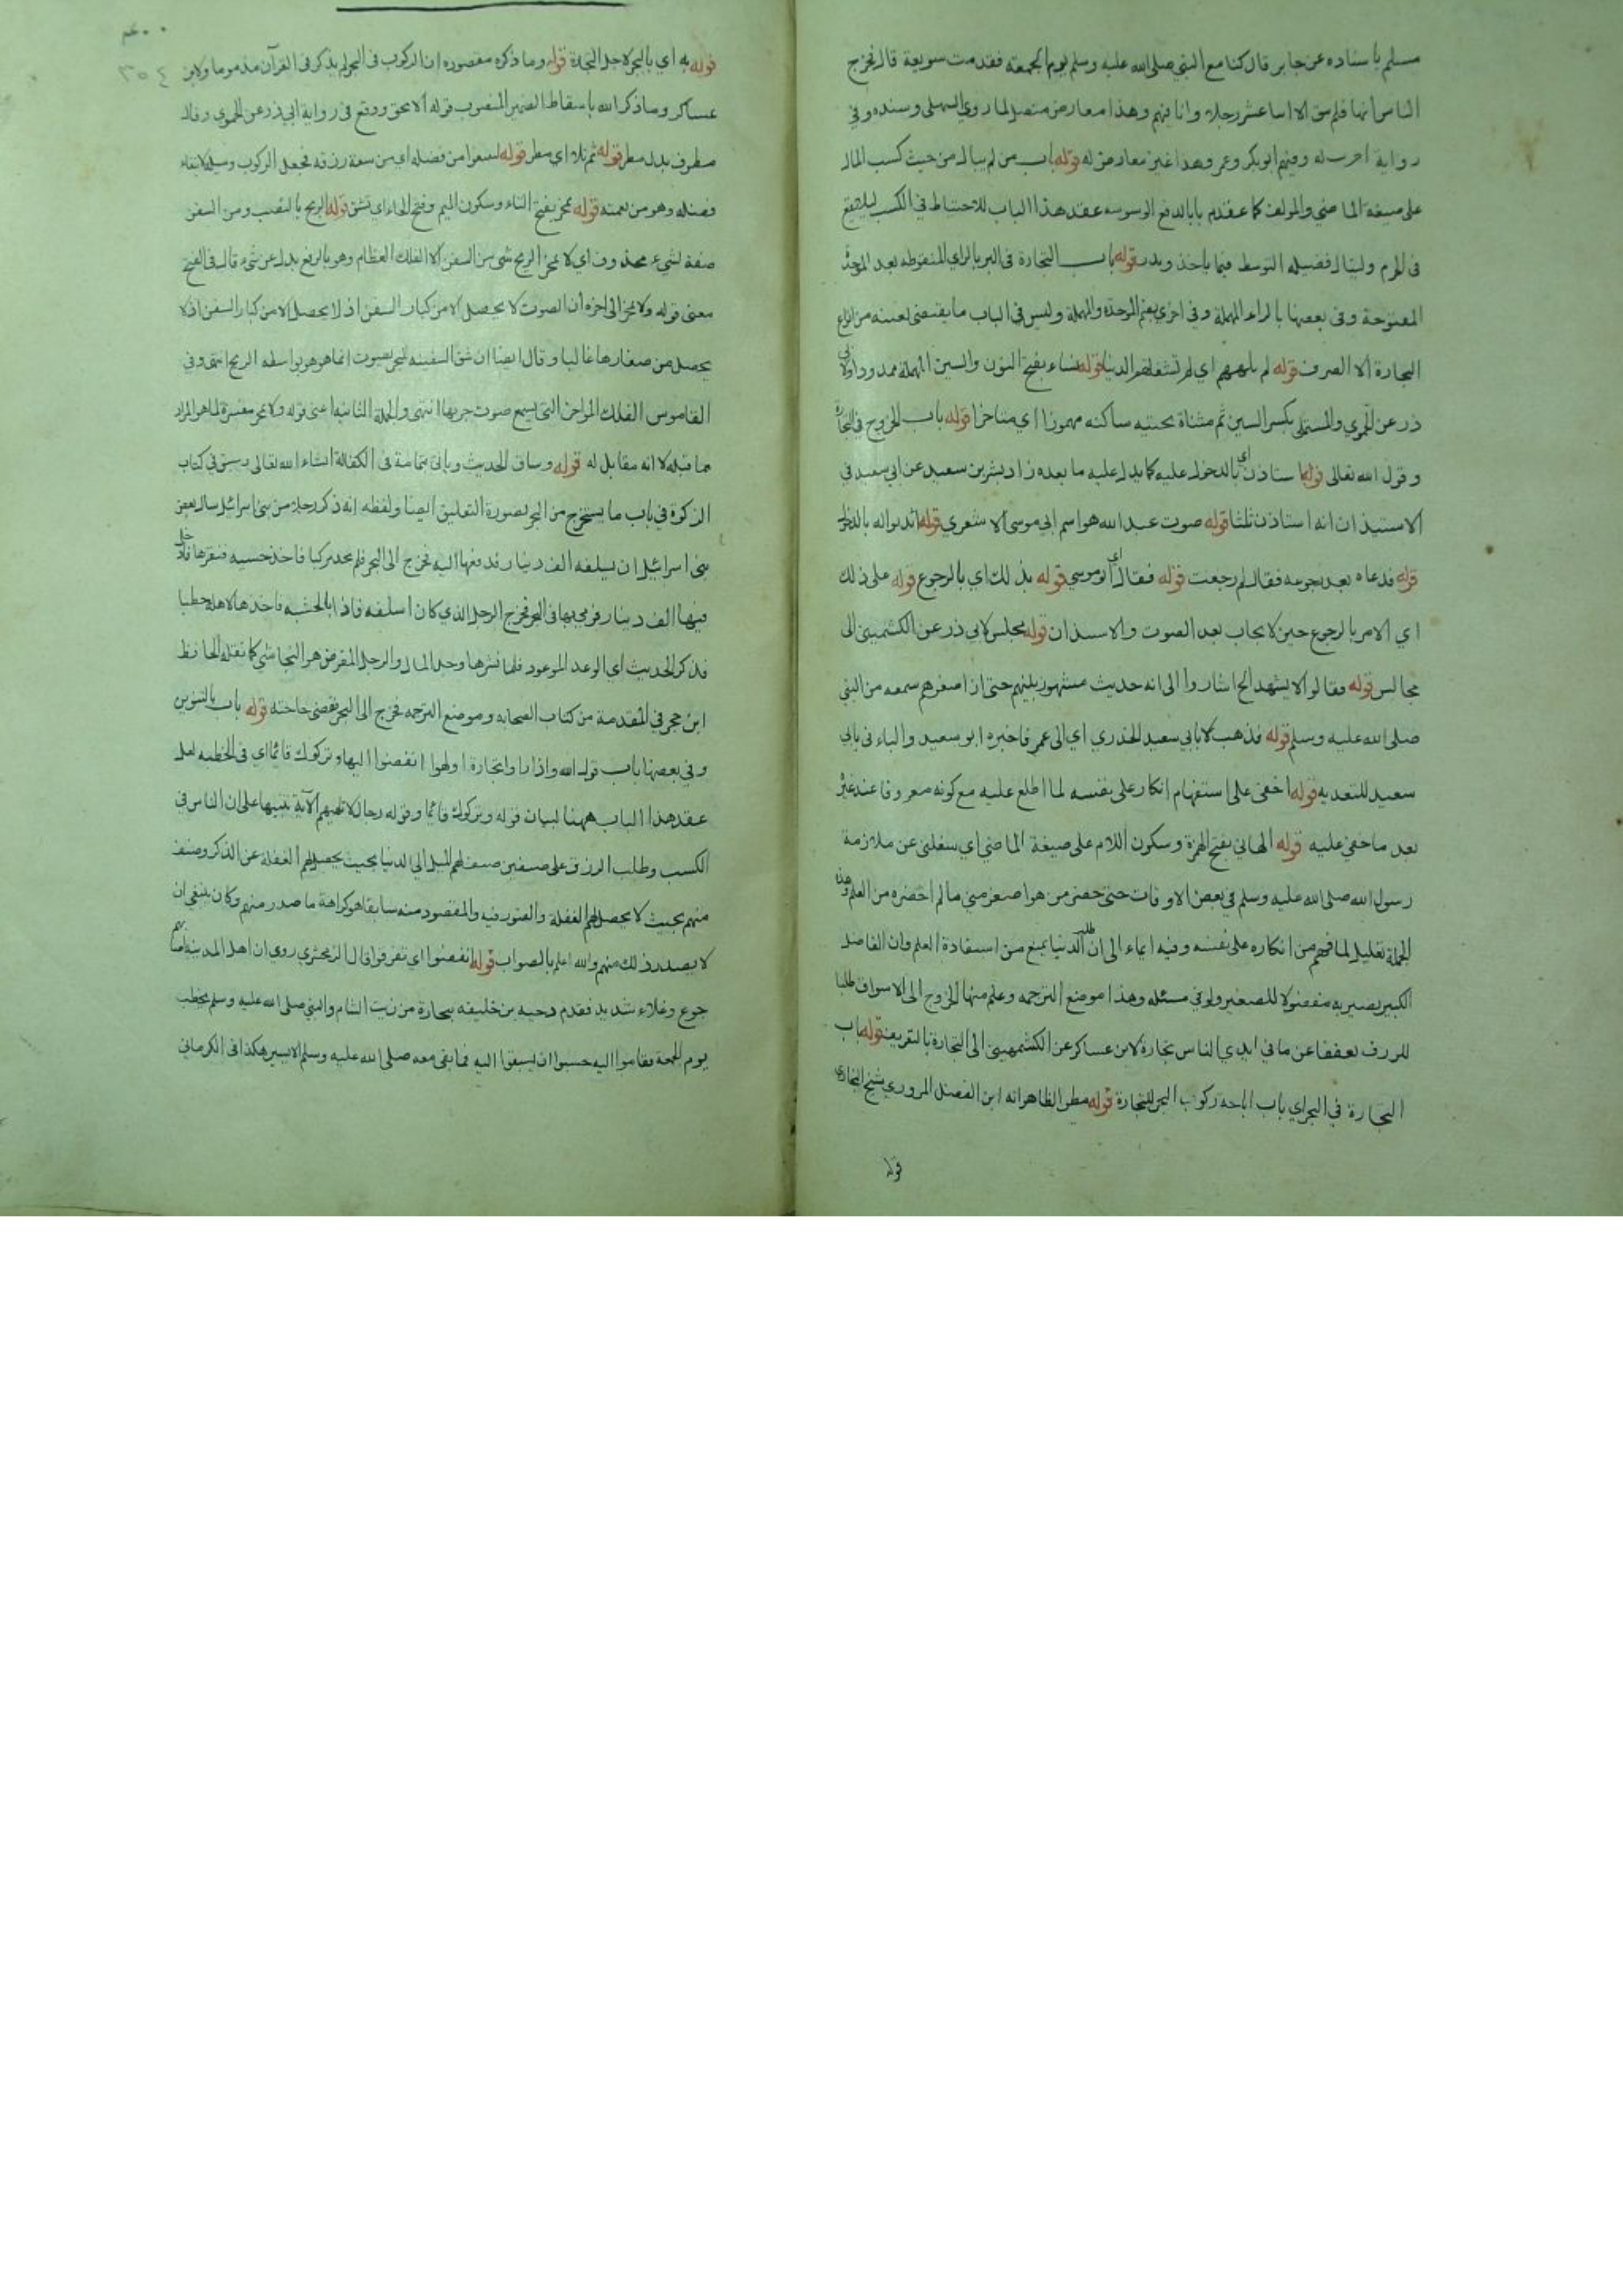 مسلم باسناده عن جابر قال كنا مع النبي صلى الله عليه وسلم يوم الجمعة فقدمت سويعة قال فخرج
الناس اليها فلم يبق الا اثنا عشر رجلا وانا فيهم وهذا معارض متصل لما روي السهلي وسنده وفي
رواية له وفيهم ابوبكر وعمر وهذا غير معارض له قوله باب من لم يبال من حيث كسب المال
على صيغة الماضي والمولف كما عقد باب الدفع الوسوسه عقد هذا الباب للاحتياط في الكسب ليلا يقع
في الحرم ولينال فضيله التوسط فيما ياخذ ويذر قوله باب التجارة في البر بالزاي المنقوطه بعد الموحدة
المفتوحة وفي بعضها بالراء المهملة وفي اخري بضم الموحدة والمهملة وليس في الباب ما يقتضي تعينه من انواع
التجارة الا الصرف قوله لم يلههم اي لم تشغلهم الدنيا قوله نساء بفتح النون والسين المهملة ممدودا ولابي
ذر عن الحموي والمستملي بكسر السين ثم مثناة تحتيه ساكنه مهموزا اي متاخرا قوله باب الخروج في التجارة
وقول الله تعالى قوله استاذن اي بالدخول عليه كما يدل عليه ما بعده زاد بشر بن سعيد عن ابي سعيد في
الاستيذان انه استاذن ثلثا قوله صوت عبد الله هو اسم ابي موسى الاشعري قوله ائذنوا له بالدخول
قوله فدعاه بعد رجوعه فقال لم رجعت قوله فقال اي ابو موسي قوله بذلك اي بالرجوع قوله على ذلك
اي الامر بالرجوع حين لا يجاب بعد الصوت والاستيذان قوله مجلس لابي ذر عن الكشميهني الى
مجالس قوله فقالوا لا يشهد الخ اشاروا الى انه حديث مشهور بينهم حتى ان اصغرهم سمعه من النبي
صلى الله عليه وسلم قوله فذهب بابي سعيد الخدري اي الى عمر فاخبره ابو سعيد والباء في بابي
سعيد للتعديه قوله اخفي على استفهام انكار على نفسه لما اطلع عليه مع كونه معروفا عند غيره
بعد ما خفي عليه قوله الهاني بفتح الهمزة وسكون اللام على صيغة الماضي اي شغلني عن ملازمة
رسول الله صلى الله عليه وسلم في بعض الاوقات حتى حضر من هو اصغر مني ما لم احضره من العلم وهذه
الجملة تعليل لما فهم من انكاره على نفسه وفيه ايماء الى ان طلب الدنيا يمنع من استفادة العلم وان الفاضل
الكبير يصير به مفضولا للصغير ولو في مسئله وهذا موضع الترجمه وعلم منها الخروج الى الاسواق طلبا
للرزق تعففا عن ما في ايدي الناس تجارة لابن عساكر عن الكشميهني الى التجارة بالتعريف قوله باب
التجارة في البحر اي باب اباحة ركوب البحر للتجارة قوله مطر الظاهر انه ابن الفضل المروزي شيخ البخاري
قوله
٣٥٤
قوله به اي بالبحر لاجل التجارة قوله وما ذكره مقصوده ان الركوب في البحر لم يذكر في القرآن مذموما ولابن
عساكر وما ذكر الله باسقاط الضمير المنصوب قوله الا بحق ووقع في رواية ابي ذر عن الحموي وقال
مطرف بدل مطر قوله ثم تلا اي مطر قوله لتبتغوا من فضله اي من سعة رزقه فجعل الركوب وسيلة لابتغاء
فضله وهو من نعمته قوله تمخر بفتح التاء وسكون الميم وفتح الخاء اي تشق قوله الريح بالنصب ومن السفن
صفة لشيء محذوف اي لا تمخر الريح شي من السفن الا الفلك العظام وهو بالرفع بدل عن شيء قال في الفتح
معنى قوله ولا تمخر الى اخره ان الصوت لا يحصل الا من كبار السفن اذ لا يحصل الا من كبار السفن اذ لا
يحصل من صغارها غالبا وقال ايضا ان شق السفينه للبحر بصوت انما هو بواسطه الريح انتهى وفي
القاموس الفلك المواخر التي يسمع صوت جريها انتهى والجملة الثانية اعني قوله ولا تمخر مفسرة لما هو المراد
مما قبله لا انه مقابل له قوله وساق الحديث وياتي بتمامه في الكفالة انشاء الله تعالى وسبق في كتاب
الزكوة في باب ما يستخرج من البحر بصورة التعليق ايضا ولفظه انه ذكر رجلا من بني اسرائيل سال بعض
بني اسرائيل ان يسلفه الف دينار فدفعها اليه فخرج الى البحر فلم يجد مركبا فاخذ خشبه فنقرها فادخل
فيها الف دينار فرمى بها في البحر فخرج الرجل الذي كان اسلفه فاذا بالخشبه فاخذها لاهله حطبا
فذكر الحديث اي الوعد الموعود فلما نشرها وجد المال والرجل المقرض هو النجاشي كما نقله الحافظ
ابن حجر في المقدمة من كتاب الصحابه وموضع الترجمه فخرج الى البحر فقضى حاجته قوله باب بالتنوين
وفي بعضها باب قول الله واذا راوا تجارة او لهوا انفضوا اليها وتركوك قائما اي في الخطبه لعل
عقد هذا الباب ههنا لبيان قوله وتركوك قائما وقوله رجال لا تلهيهم الآية تنبيها على ان الناس في
الكسب وطلب الرزق على صنفين صنف لهم الميل الي الدنيا بحيث يحصل لهم الغفلة عن الذكر وصنف
منهم بحيث لا يحصل لهم الغفلة والفتور فيه والمقصود منه سابقا هو كراهة ما صدر منهم وكان ينبغي ان
لا يصدر ذلك منهم والله اعلم بالصواب قوله انفضوا اي تفرقوا قال الزمخشري روي ان اهل المدينة اصابهم
جوع وغلاء شديد فقدم دحيه بن خليفه بتجارة من زيت الشام والنبي صلى الله عليه وسلم يخطب
يوم الجمعة فقاموا اليه حسبوا ان يسبقوا اليه فما بقي معه صلى الله عليه وسلم الا يسير هكذا في الكرماني